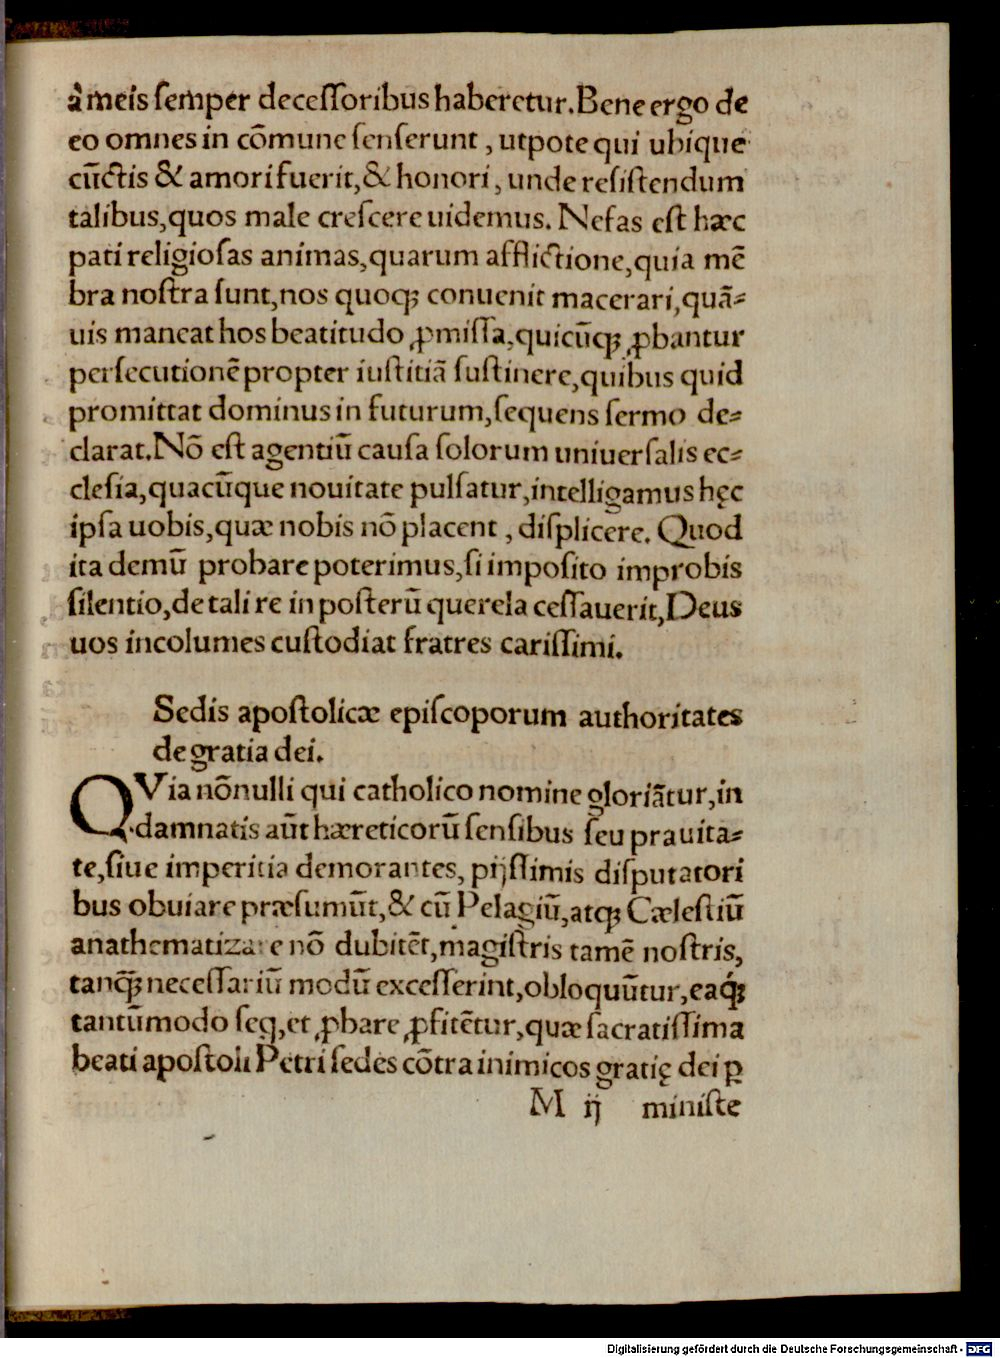 à meis semper decessoribus haberetur. Bene ergo de
eo omnes in cōmune senserunt, utpote qui ubique
cūctis & amori fuerit, & honori, unde resistendum
talibus, quos male crescere uidemus. Nefas est hæc
pati religiosas animas, quarum afflictione, quia mē
bra nostra sunt, nos quoqꝫ conuenit macerari, quā⸗
uis maneat hos beatitudo ꝓmissa, quicūqꝫ ꝓbantur
persecutionē propter iustitiā sustinere, quibus quid
promittat dominus in futurum, sequens sermo de⸗
clarat. Nō est agentiū causa solorum uniuersalis ec⸗
clesia, quacūque nouitate pulsatur, intelligamus hęc
ipsa uobis, quæ nobis nō placent, displicere. Quod
ita demū probare poterimus, si imposito improbis
silentio, de tali re in posterū querela cessauerit, Deus
uos incolumes custodiat fratres carissimi.
Sedis apostolicæ episcoporum authoritates
de gratia dei.
QVia nōnulli qui catholico nomine gloriātur, in
damnatis aūt hæreticorū sensibus seu prauita⸗
te, siue imperitia demorantes, pijssimis disputatori
bus obuiare præsumūt, & cū Pelagiū, atqꝫ Cælestiū
anathematizare nō dubitēt, magistris tamē nostris,
tanq̄ꝫ necessariū modū excesserint, obloquūtur, eaqꝫ́
tantūmodo seq̄, et ꝓbare ꝓfitētur, quæ sacratissima
beati apostoli Petri sedes cōtra inimicos gratię dei ꝑ
M ij ministe
Digitalisierung gefördert durch die Deutsche Forschungsgemeinschaft - DFG